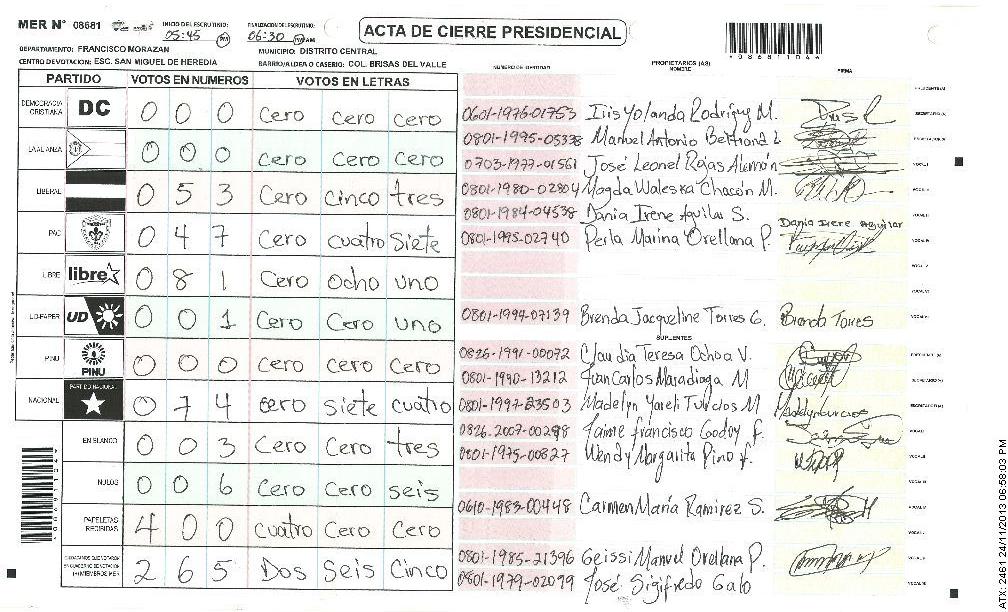 MER N° 08681
INICIO DEL ESCRUTINIO: 05:45 PM
FINALIZACION DEL ESCRUTINIO: 06:30 PM AM
ACTA DE CIERRE PRESIDENCIAL
DEPARTAMENTO: FRANCISCO MORAZAN
MUNICIPIO: DISTRITO CENTRAL
CENTRO DE VOTACION: ESC. SAN MIGUEL DE HEREDIA
BARRIO/ALDEA O CASERIO: COL. BRISAS DEL VALLE
PARTIDO VOTOS EN NUMEROS VOTOS EN LETRAS
DEMOCRACIA CRISTIANA DC 0 0 0 cero cero cero
LA ALIANZA 0 0 0 cero cero cero
LIBERAL 0 5 3 Cero Cinco tres
PAC 0 4 7 Cero cuatro Siete
LIBRE libre 0 8 1 Cero Ocho uno
UD-FAPER UD 0 0 1 Cero Cero uno
PINU PINU 0 0 0 cero cero Cero
NACIONAL PARTIDO NACIONAL 0 7 4 cero siete cuatro
EN BLANCO 0 0 3 Cero Cero tres
NULOS 0 0 6 Cero Cero seis
PAPELETAS RECIBIDAS 4 0 0 cuatro Cero Cero
2 6 5 Dos Seis Cinco
NUMERO DE IDENTIDAD PROPIETARIOS (AS) NOMBRE FIRMA
0601-1976-01753 Iris Yolanda Rodriguez M.
0801-1995-05338 Manuel Antonio Beltrand L
0703-1977-01561 José Leonel Rojas Alemán
0801-1980-02804 Magda Waleska Chacón M.
0801-1984-04538 Dania Irene Aguilar S. Dania Irene Aguilar
0801-1995-02740 Perla Marina Orellana P.
0801-1994-07139 Brenda Jacqueline Torres G. Brenda Torres
SUPLENTES
0826-1991-00072 Claudia Teresa Ochoa V.
0801-1990-13212 Juan Carlos Maradiaga M
0801-1997-23503 Madelyn Yareli Turcios M
0826-2007-00288 Jaime Francisco Godoy F.
0801-1975-00827 Wendy Margarita Pino F.
0610-1983-00448 Carmen María Ramirez S.
0801-1985-21396 Geissi Manuel Orellana P.
0801-1979-02079 José Sigifredo Galo
ATX-2461 24/11/2013 06:58:03 PM